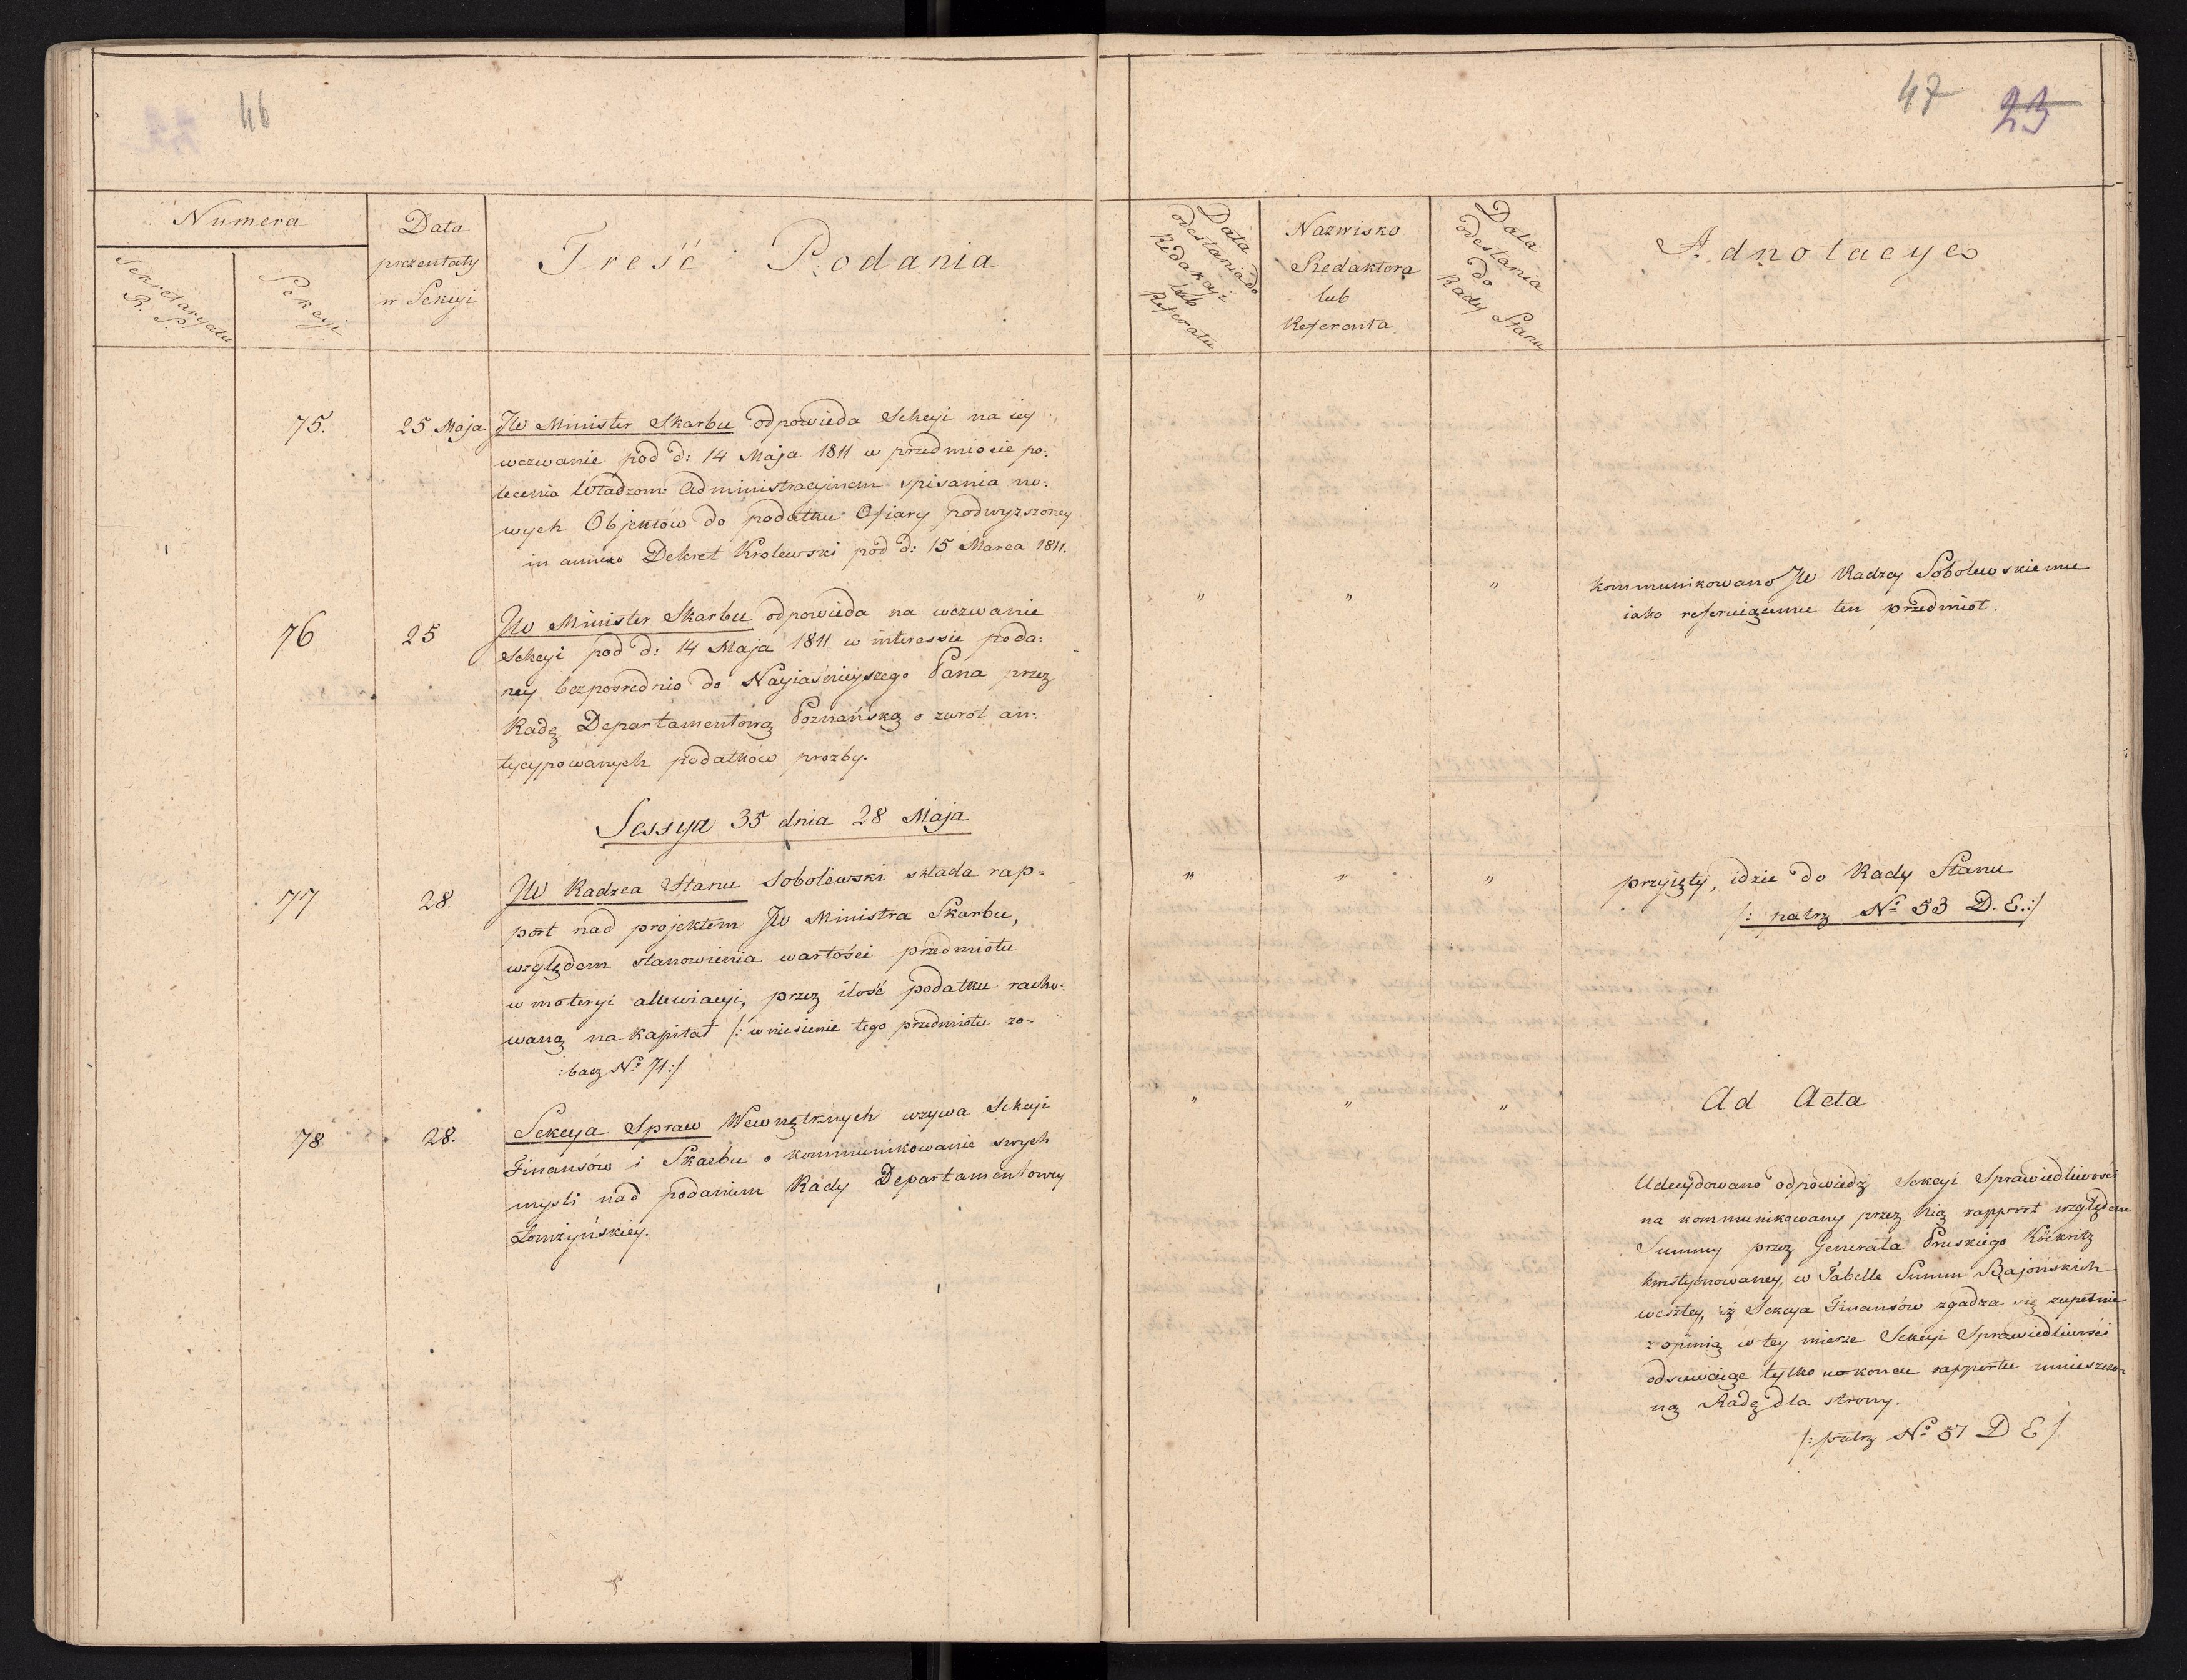 46
Numera
Sekretaryatu R. S.
Sekcyi
Data prezentaty w Sekcyi
Treść Podania
75.
25 Maja
JW Minister Skarbu odpowieda Sekcyi na iey
wezwanie pod d: 14 Maja 1811 w przedmiocie po:
lecenia Władzom Administracyinem spisania no:
wych Objektów do podatku Ofiary podwyzszoney
in annexo Dekret Krolewski pod d: 15 Marca 1811.
76
25
JW Minister Skarbu odpowieda na wezwanie
Sekcyi pod d: 14 Maja 1811 w interessie poda:
ney bezposrednio do Nayiaśnieyszego Pana przez
Radę Departamentową Poznańską o zwrot an:
tycypowanych podatków prozby.
Sessya 35 dnia 28 Maja
77
28.
JW Radzca Stanu Sobolewski składa rap=
port nad projektem JW Ministra Skarbu,
względem stanowienia wartości przedmiotu
w materyi allewiacyi, przez ilość podatku racho:
waną na Kapitał /: wniesienie tego przedmiotu zo=
:bacz No 71:/
78
28.
Sekcya Spraw Wewnętrznych wzywa Sekcyi
Finansów i Skarbu o kommunikowanie swych
mysli nad podaniem Rady Departamentowey
Łomżyńskiey.
47 23
Data odesłania do Redakcyi lub Referatu
Nazwisko Redaktora lub Referenta
Data odesłania do Rady Stanu
Adnotacye
" " "
kommunikowano JW Radzcy Sobolewskiemu
iako referuiącemu ten przedmiot.
" " "
przyięty, idzie do Rady Stanu
/: patrz No 53 D. E.:/
" " "
Ad Acta
Udecydowano odpowiedź Sekcyi Sprawiedliwości
na kommunikowany przez Nią rapport względem
Summy przez Generała Pruskiego Köckritz
w Tabelle Summ Bajońskich
weszłey, iż Sekcya Finansów zgadza się zupełnie
z opinią w tey mierze Sekcyi Sprawiedliwości
odsuwaiąc tylko na koncu rapportu umieszczo:
ną Radę dla strony.
/: patrz No 57 D E /